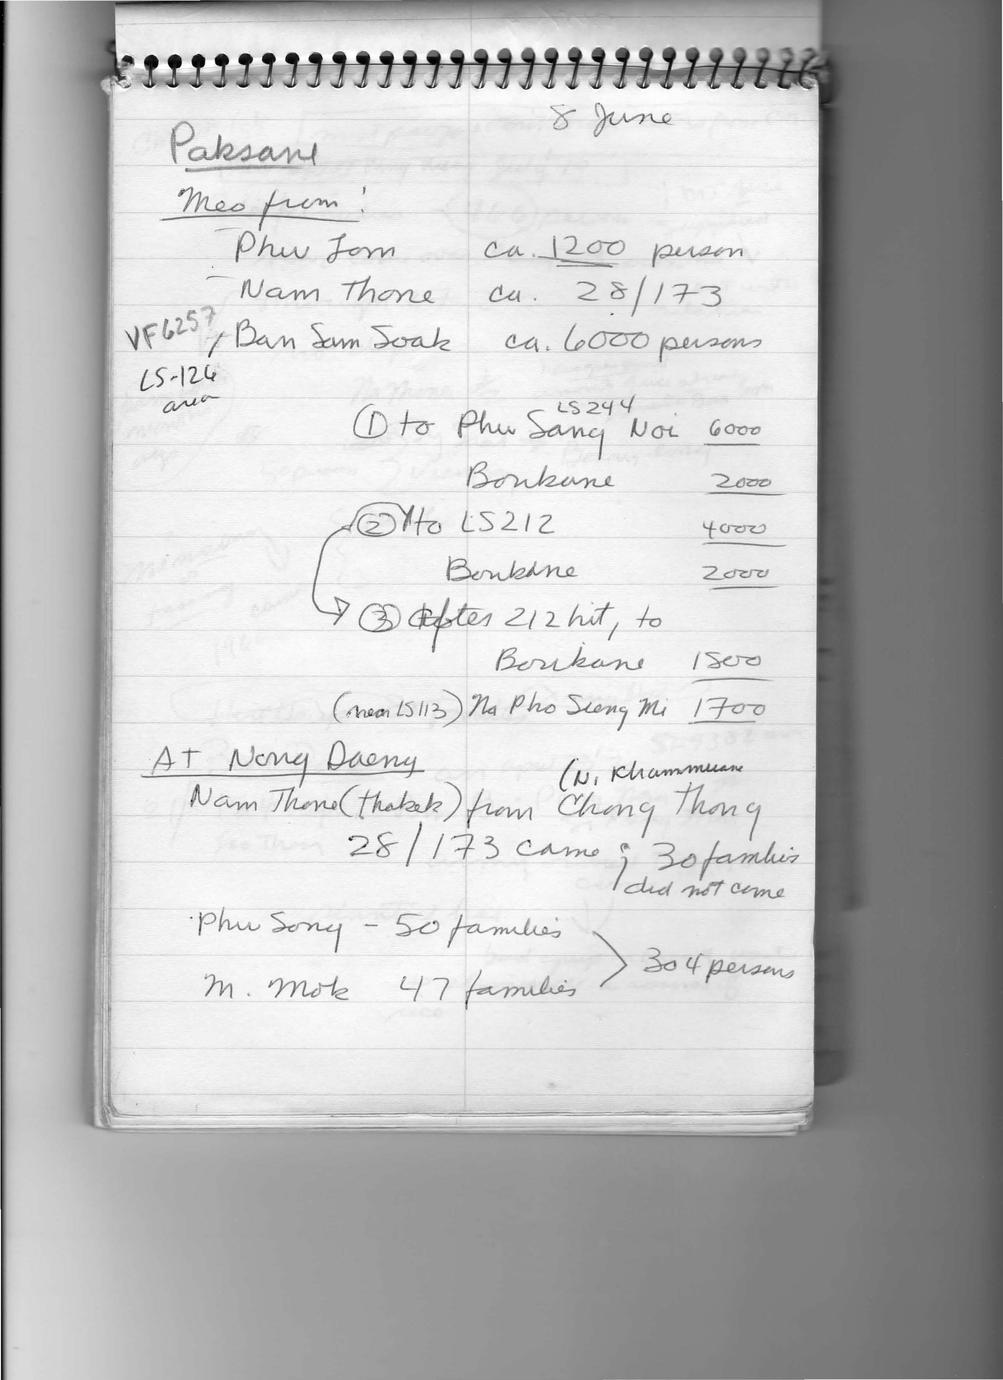 8 June
Paksane
Meo from:
Phu Jom ca. 1200 person
Nam Thone ca. 28/173
VF6257 Ban Sam Soak ca. 6000 persons
LS-126
area
LS244
① to Phu Sang Noi 6000
Boukane 2000
② to LS212 4000
Boukane 2000
③ after 212 hit, to
Boukane 1500
(near LS113) Na Pho Sieng Mi 1700
At Nong Daeng
(N. Khammuane
Nam Thone (Thakek) from Chong Thong
28/173 came; 30 families
did not come
Phu Song - 50 families
304 persons
M. Mok 47 families